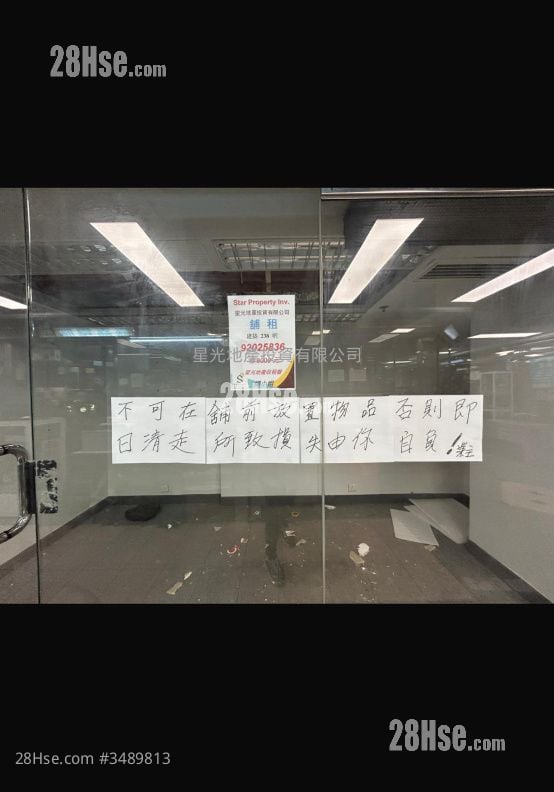 28Hse.com
Star Property Inv.
星光地產投資有限公司
舖 租
建築 236 呎
92025836
星光地產投資有限公司
28Hse
不可在舖前放置物品 否則即
日清走 所致損失由你 自負！業主
28Hse.com
28Hse.com #3489813